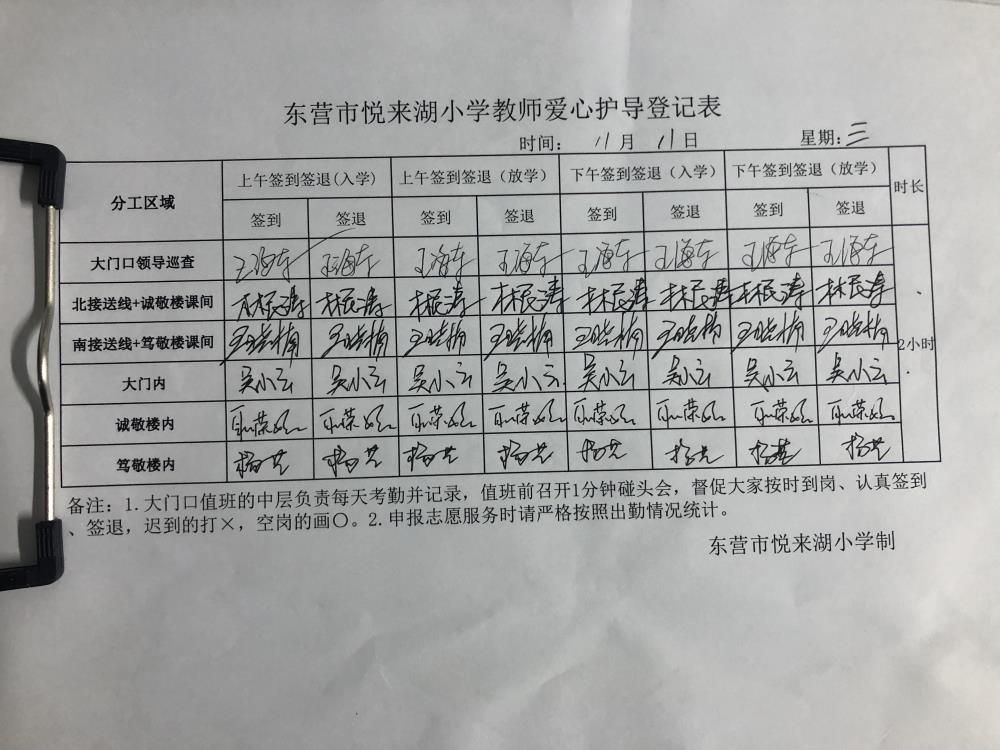 东营市悦来湖小学教师爱心护导登记表
时间: 11月 11日 星期:三
分工区域 上午签到签退(入学) 上午签到签退(放学) 下午签到签退(入学) 下午签到签退(放学) 时长
签到 签退 签到 签退 签到 签退 签到 签退
大门口领导巡查 王海东 王海东 王海东 王海东 王海东 王海东 王海东 王海东
北接送线+诚敬楼课间 林民涛 林民涛 林民涛 林民涛 林民涛 林民涛 林民涛 林民涛
南接送线+笃敬楼课间 王晓楠 王晓楠 王晓楠 王晓楠 王晓楠 王晓楠 王晓楠 王晓楠
2小时
大门内 吴小云 吴小云 吴小云 吴小云 吴小云 吴小云 吴小云 吴小云
诚敬楼内
笃敬楼内
备注:1.大门口值班的中层负责每天考勤并记录,值班前召开1分钟碰头会,督促大家按时到岗、认真签到
、签退,迟到的打×,空岗的画〇。2.申报志愿服务时请严格按照出勤情况统计。
东营市悦来湖小学制